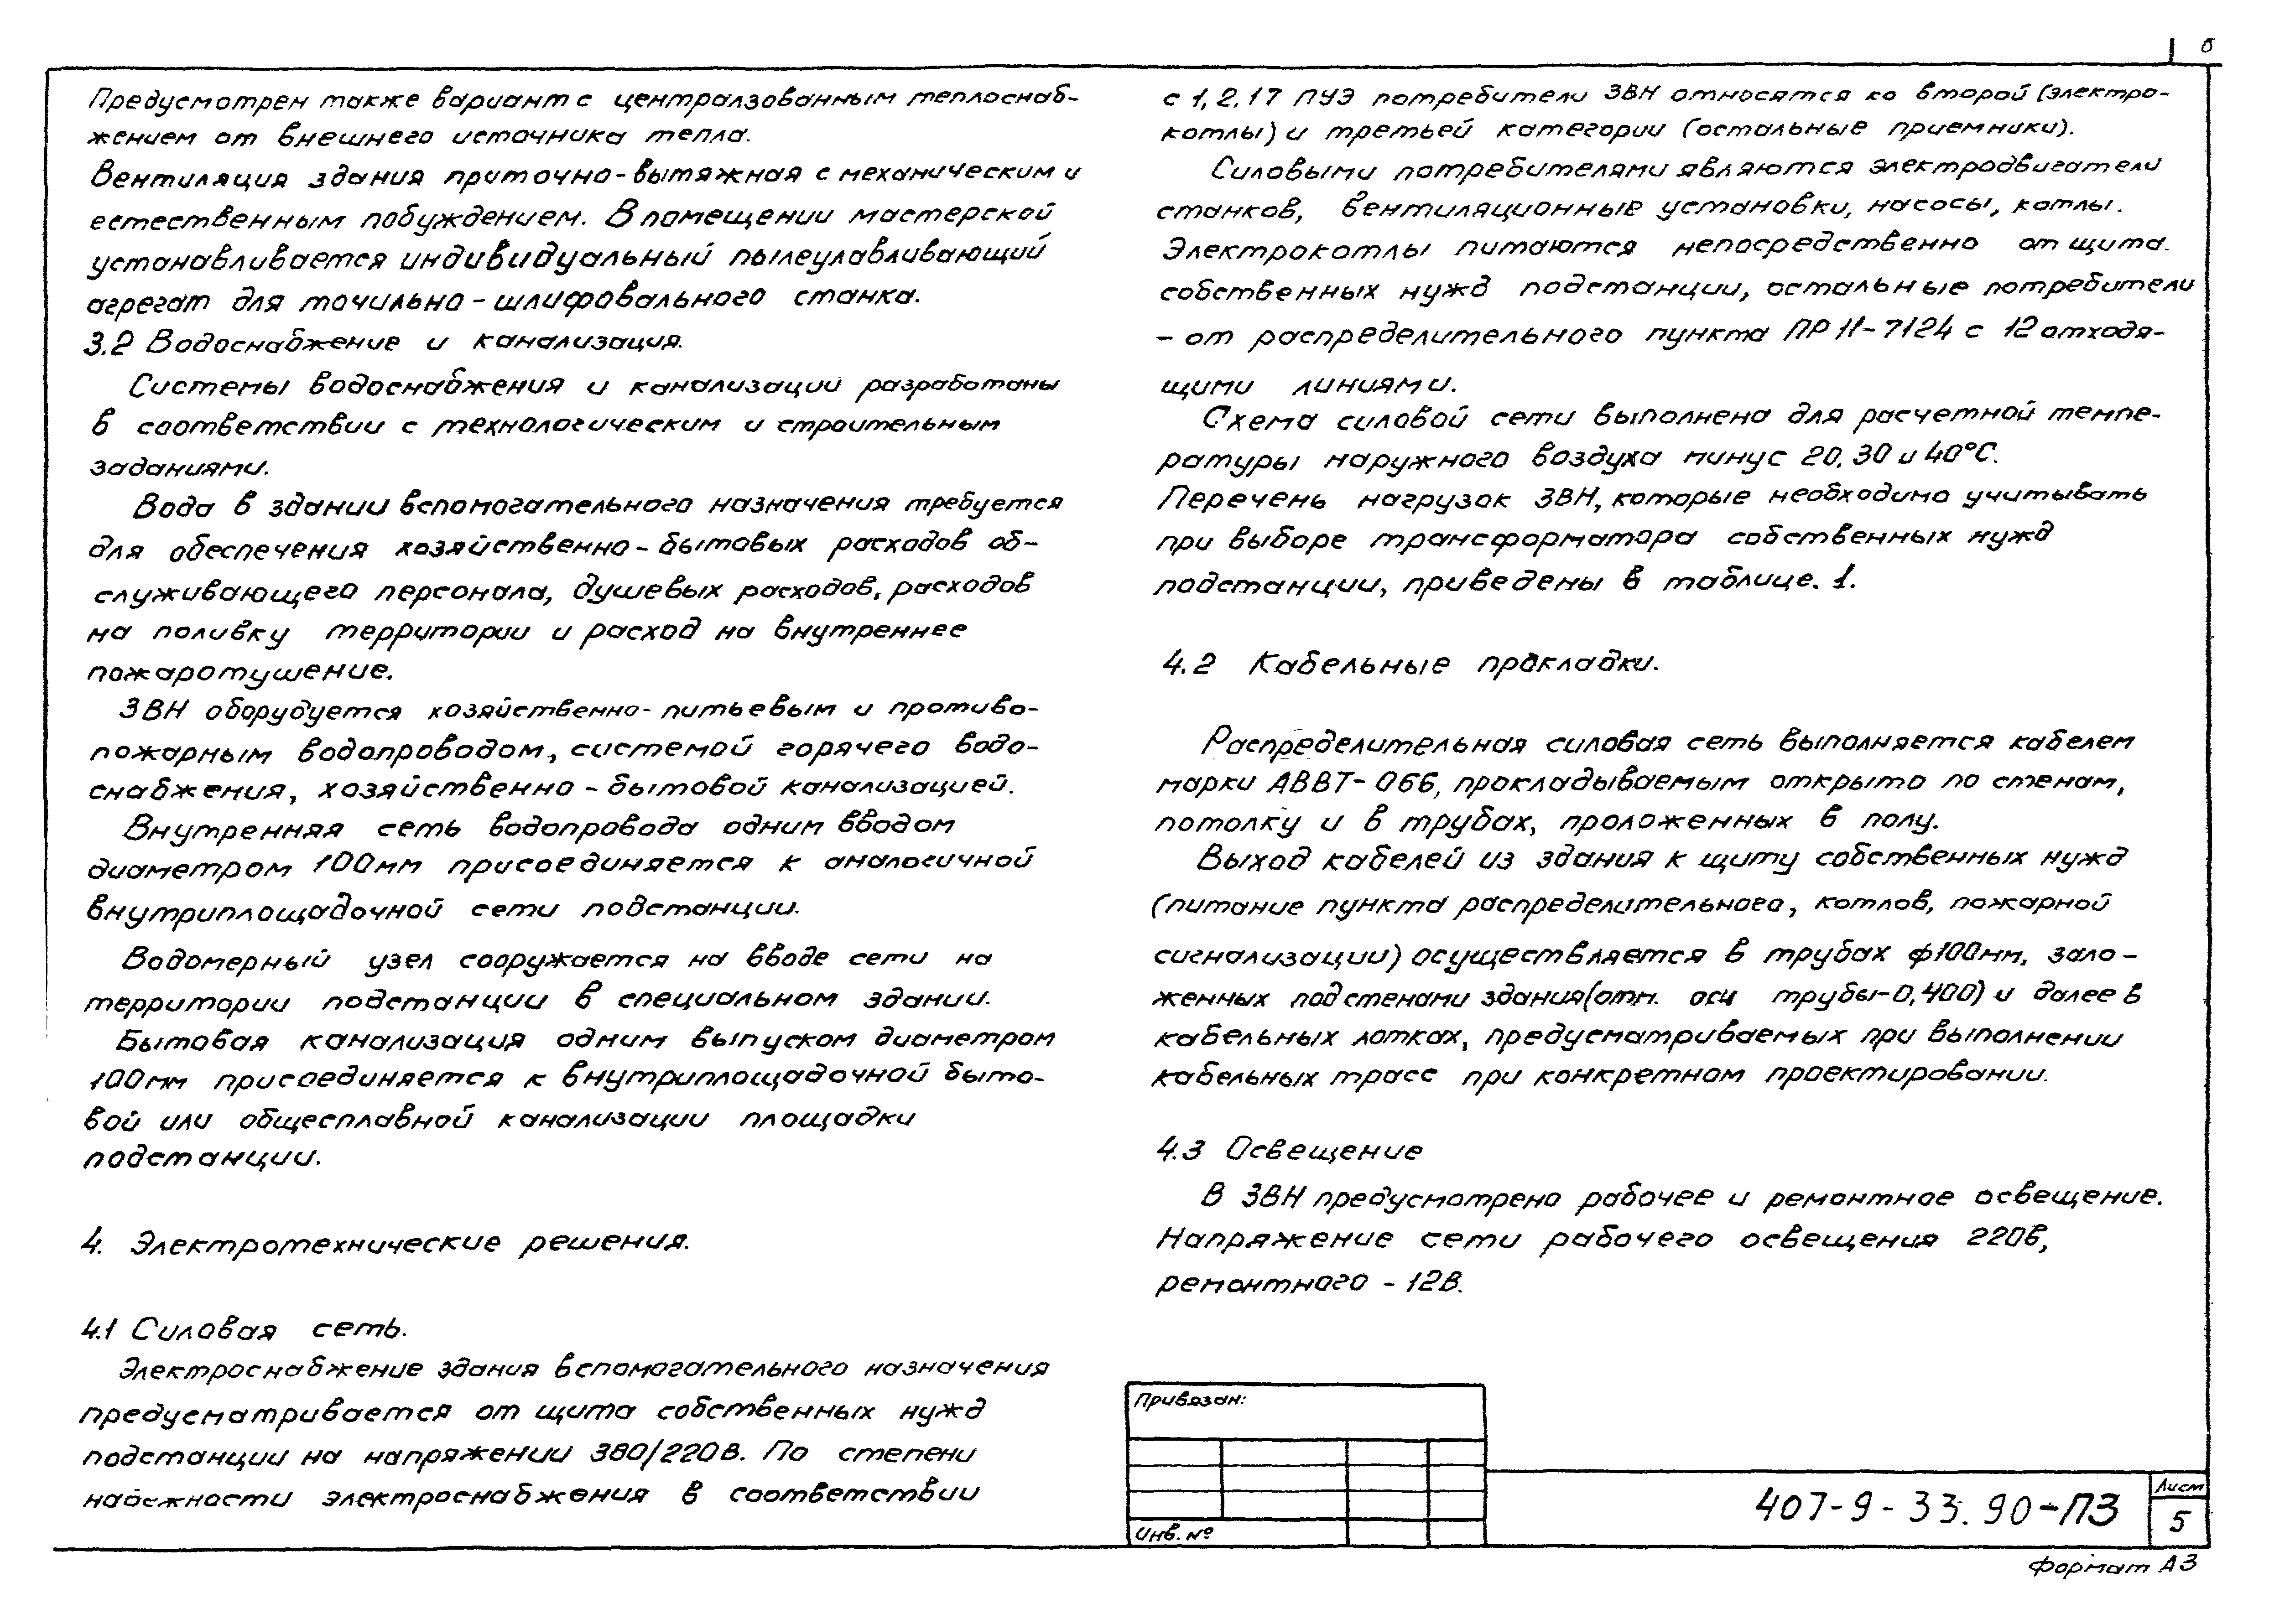 б
Предусмотрен также вариант с централзованным теплоснаб-
жением от внешнего источника тепла.
Вентиляция здания приточно-вытяжная с механическим и
естественным побуждением. В помещении мастерской
устанавливается индивидуальный пылеулавливающий
агрегат для точильно-шлифовального станка.
3.2 Водоснабжение и канализация.
Системы водоснабжения и канализации разработаны
в соответствии с технологическим и строительным
заданиями.
Вода в здании вспомогательного назначения требуется
для обеспечения хозяйственно-бытовых расходов об-
служивающего персонала, душевых расходов, расходов
на поливку территории и расход на внутреннее
пожаротушение.
ЗВН оборудуется хозяйственно-питьевым и противо-
пожарным водопроводом, системой горячего водо-
снабжения, хозяйственно-бытовой канализацией.
Внутренняя сеть водопровода одним вводом
диаметром 100мм присоединяется к аналогичной
внутриплощадочной сети подстанции.
Водомерный узел сооружается на вводе сети на
территории подстанции в специальном здании.
Бытовая канализация одним выпуском диаметром
100мм присоединяется к внутриплощадочной быто-
вой или общесплавной канализации площадки
подстанции.
4. Электротехнические решения.
4.1 Силовая сеть.
Электроснабжение здания вспомогательного назначения
предусматривается от щита собственных нужд
подстанции на напряжении 380/220В. По степени
надежности электроснабжения в соответствии
с 1,2,17 ПУЭ потребители ЗВН относятся ко второй (электро-
котлы) и третьей категории (остальные приемники).
Силовыми потребителями являются электродвигатели
станков, вентиляционные установки, насосы, котлы.
Электрокотлы питаются непосредственно от щита
собственных нужд подстанции, остальные потребители
- от распределительного пункта ПР 11-7124 с 12 отходя-
щими линиями.
Схема силовой сети выполнена для расчетной темпе-
ратуры наружного воздуха минус 20, 30 и 40°С.
Перечень нагрузок ЗВН, которые необходимо учитывать
при выборе трансформатора собственных нужд
подстанции, приведены в таблице. 1.
4.2 Кабельные прокладки.
Распределительная силовая сеть выполняется кабелем
марки АВВТ-066, прокладываемым открыто по стенам,
потолку и в трубах, проложенных в полу.
Выход кабелей из здания к щиту собственных нужд
(питание пункта распределительного, котлов, пожарной
сигнализации) осуществляется в трубах ф100мм, зало-
женных под стенами здания(отм. оси трубы-0,400) и далее в
кабельных лотках, предусматриваемых при выполнении
кабельных трасс при конкретном проектировании.
4.3 Освещение
В ЗВН предусмотрено рабочее и ремонтное освещение.
Напряжение сети рабочего освещения 220В,
ремонтного - 12В.
Привязан:
Инв. №
407-9-33.90-ПЗ
Лист
5
Формат А3